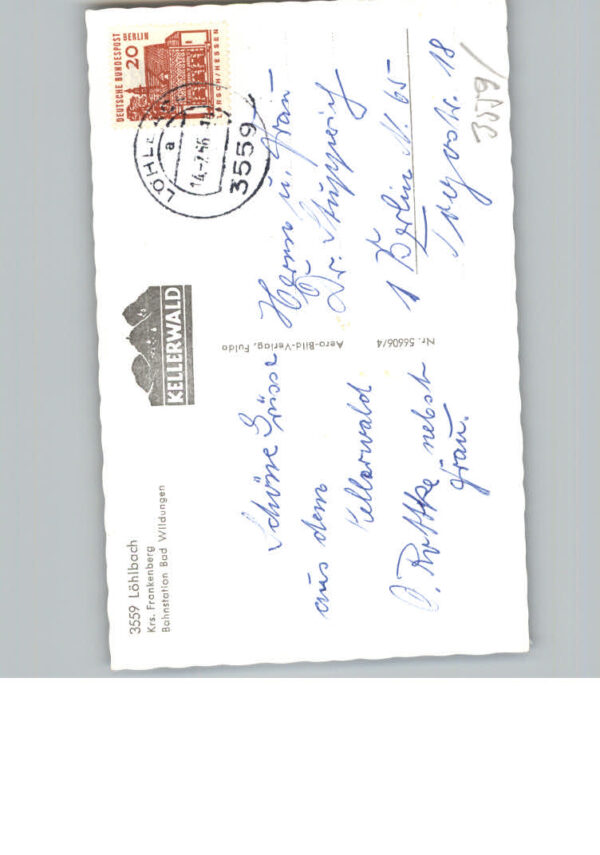 3559 Löhlbach
Krs. Frankenberg
Bahnstation Bad Wildungen
KELLERWALD
DEUTSCHE BUNDESPOST BERLIN
20
LORSCH/HESSEN
LÖHL
a
14.-7.66
3559
Schöne Grüsse
aus dem
Kellerwald
O. Rottke nebst
Frau.
Aero-Bild-Verlag, Fulda
Nr. 56606/4
Herrn u. Frau
Dr. Stupperich
1 Berlin N. 65-
18
3559/